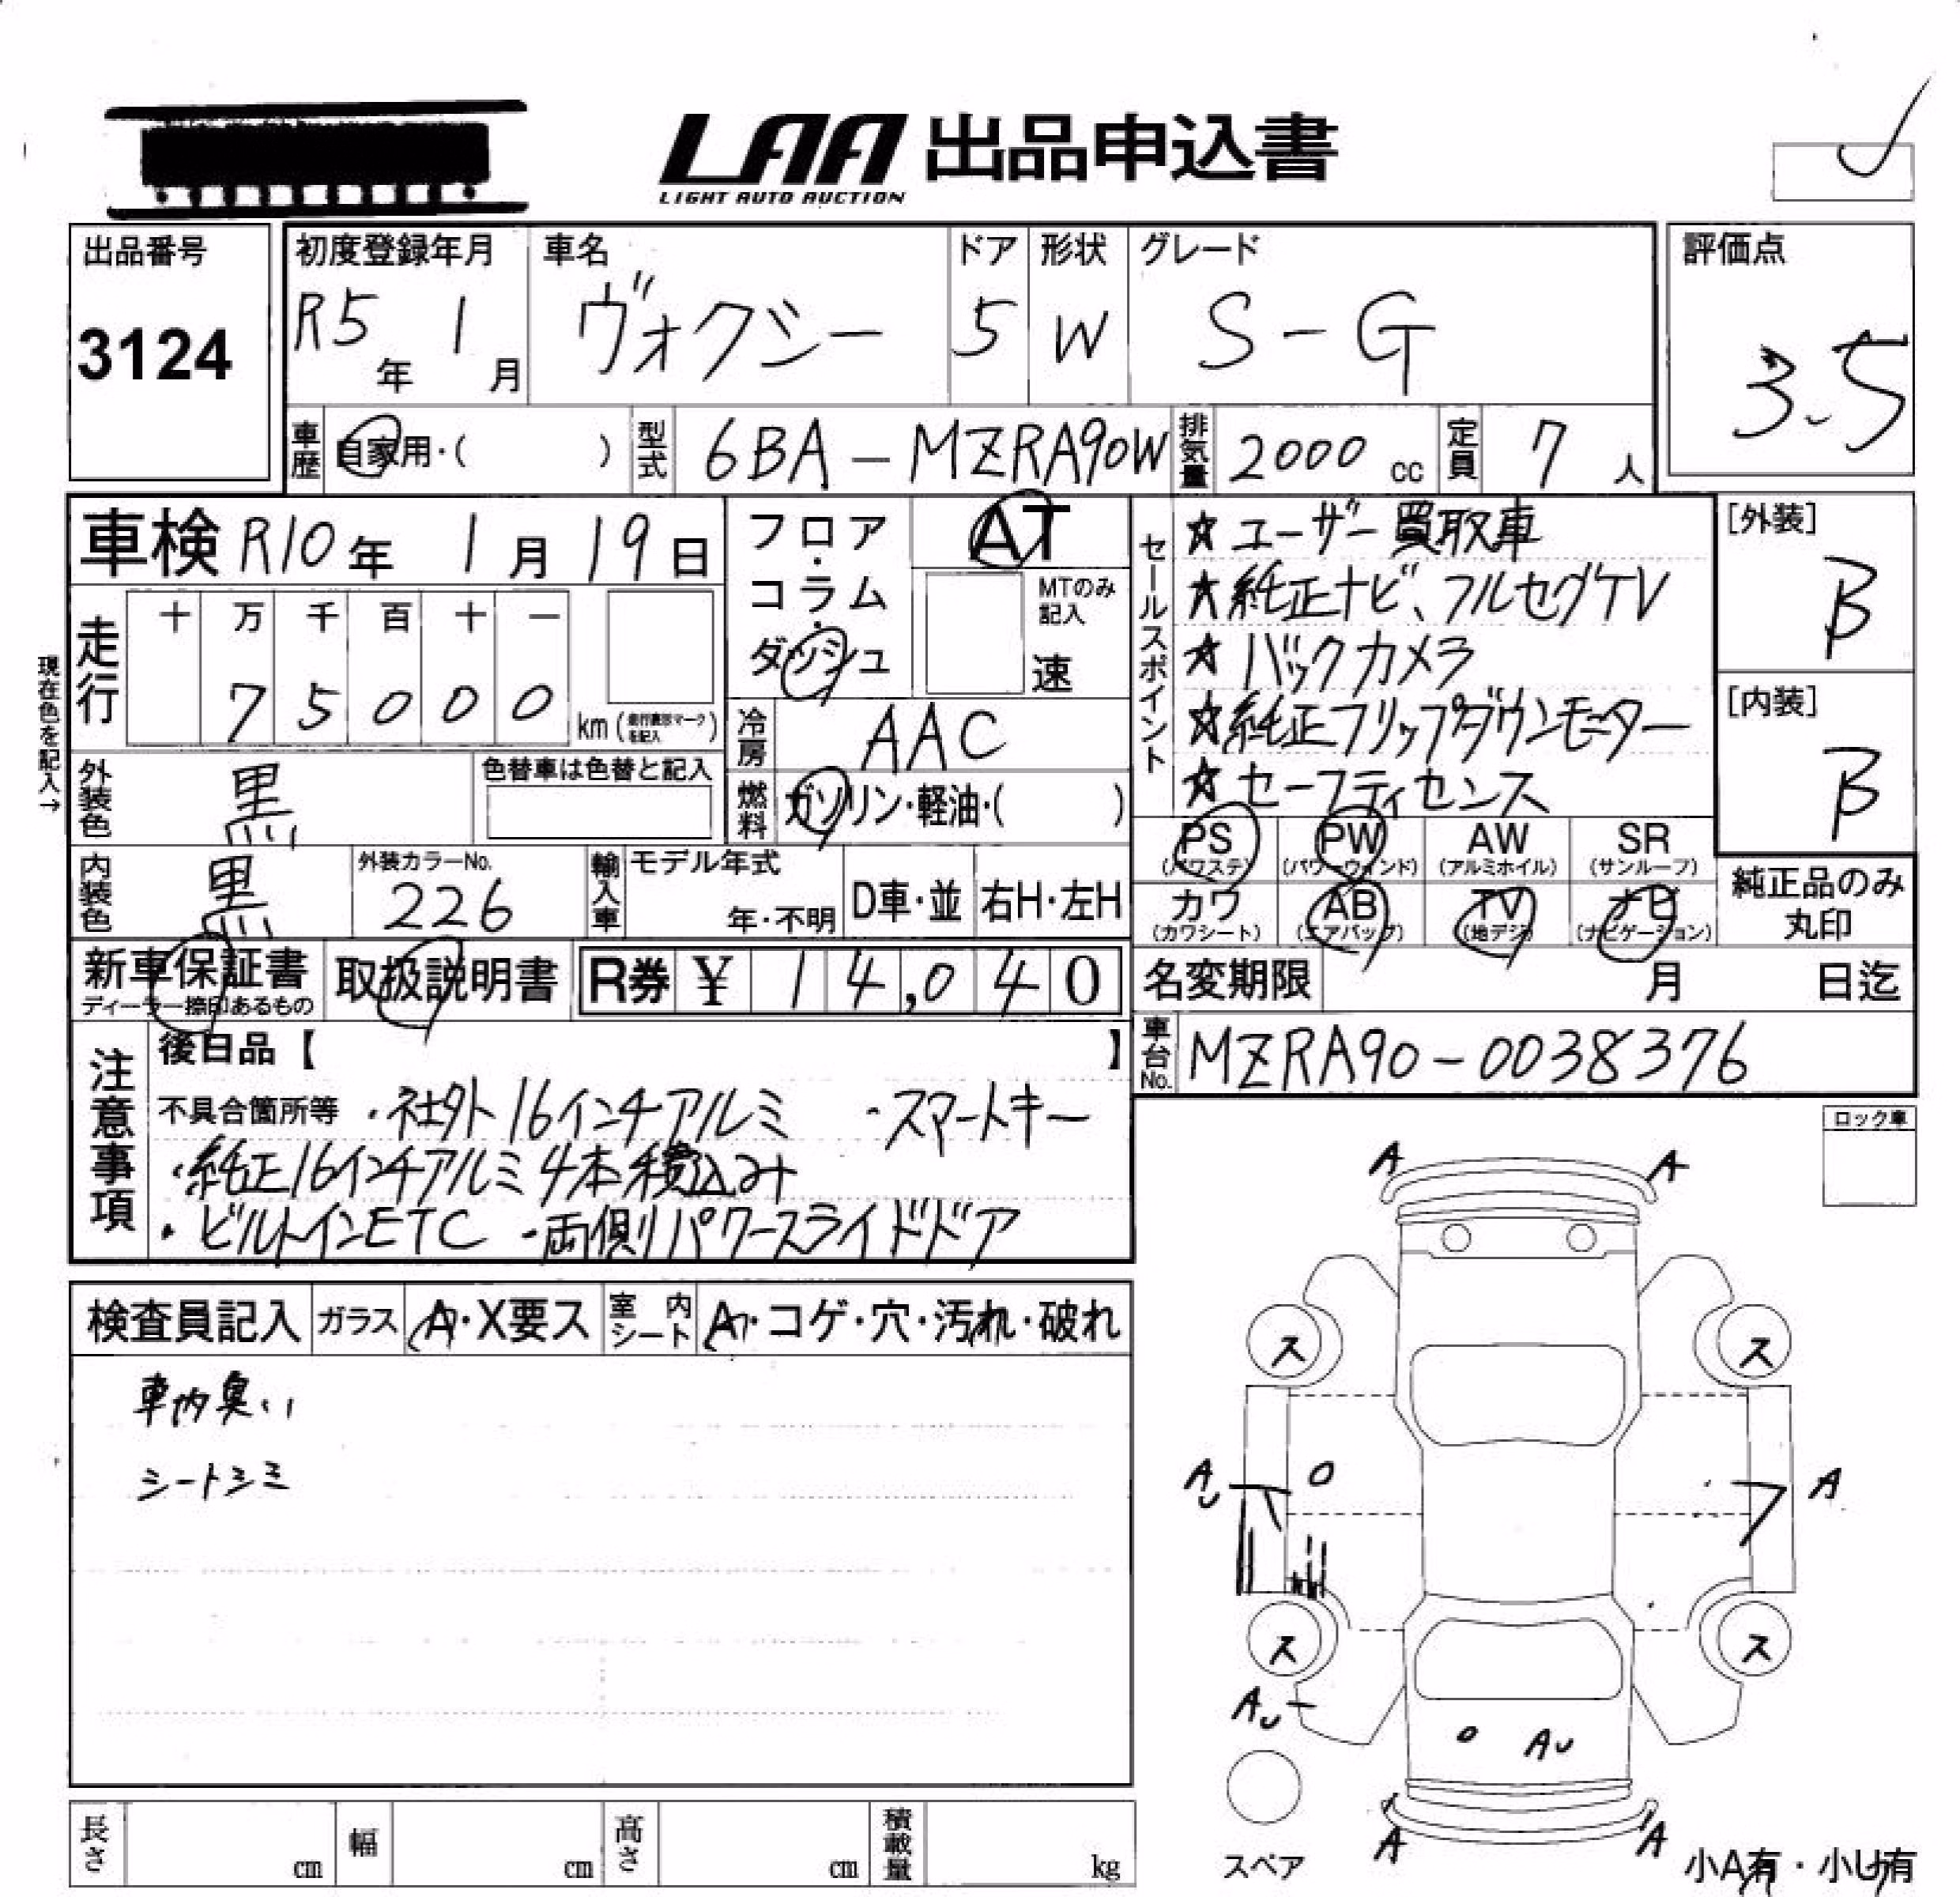 LAA 出品申込書
LIGHT AUTO AUCTION
出品番号
3124
初度登録年月
R5年 1月
車名
ヴォクシー
ドア
5
形状
W
グレード
S-G
評価点
3.5
車歴 自家用・( )
型式 6BA-MZRA90W
排気量 2000 cc
定員 7人
車検 R10年 1月 19日
フロア・コラム・ダッシュ
AT
MTのみ記入
速
現在色を記入→
走行
十 万 千 百 十 一
7 5 0 0 0
km(走行表示マークを記入)
冷房 AAC
燃料 ガソリン・軽油・( )
外装色 黒
色替車は色替と記入
内装色 黒
外装カラーNo.
226
輸入車 モデル年式
年・不明
D車・並
右H・左H
セールスポイント
☆ユーザー買取車
★純正ナビ、フルセグTV
★バックカメラ
☆純正フリップダウンモニター
☆セーフティセンス
[外装]
B
[内装]
B
PS (パワステ)
PW (パワーウィンド)
AW (アルミホイル)
SR (サンルーフ)
カワ (カワシート)
AB (エアバッグ)
TV (地デジ)
ナビ (ナビゲーション)
純正品のみ丸印
新車保証書
ディーラー捺印あるもの
取扱説明書
R券 ¥ 14,040
名変期限 月 日迄
車台No. MZRA90-0038376
注意事項
後日品【 】
不具合箇所等 ・社外16インチアルミ ・スマートキー
・純正16インチアルミ4本積込み
・ビルトインETC ・両側パワースライドドア
ロック車
検査員記入
ガラス A・X要ス
室内シート A・コゲ・穴・汚れ・破れ
車内臭い
シートシミ
A A
ス ス
AU A
ス ス
AU
AU
A A
スペア
小A有・小U有
長さ cm
幅 cm
高さ cm
積載量 kg